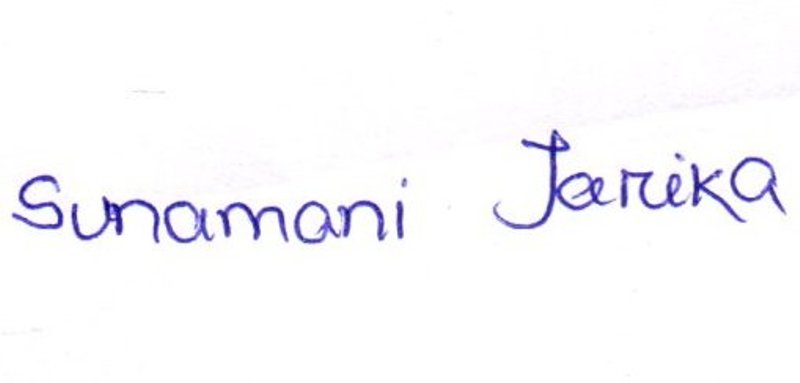 Sunamani Jarika